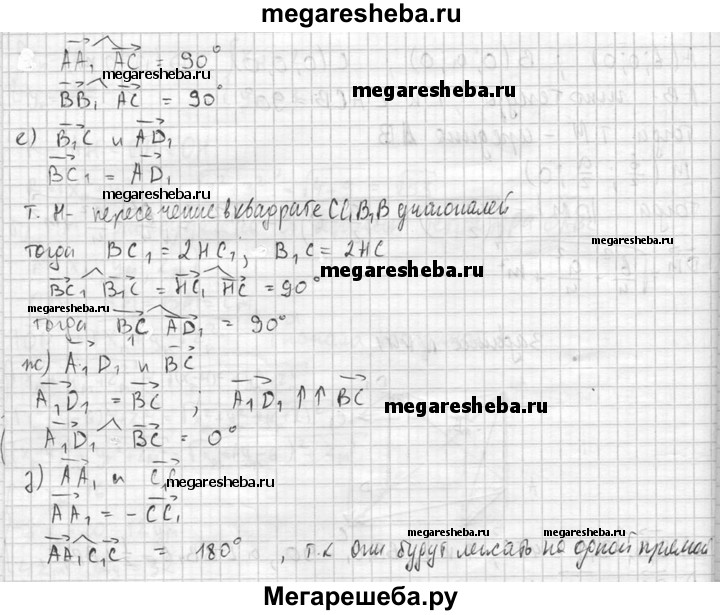 megaresheba.ru
AA₁ ^ AC = 90°
megaresheba.ru
BB₁ ^ AC = 90°
megaresheba.ru
megaresheba.ru
е) B₁C и AD₁
BC₁ = AD₁
megaresheba.ru
т. H - пересечение в квадрате CC₁B₁B диагоналей
тогда BC₁ = 2HC₁; B₁C = 2HC
megaresheba.ru
BC₁ ^ B₁C = HC₁ ^ HC = 90°
megaresheba.ru
megaresheba.ru
тогда B₁C ^ AD₁ = 90°
ж) A₁D₁ и BC
A₁D₁ = BC ; A₁D₁ ↑↑ BC
megaresheba.ru
A₁D₁ ^ BC = 0°
з) AA₁ и C₁C
megaresheba.ru
AA₁ = - CC₁
megaresheba.ru
megaresheba.ru
AA₁ ^ C₁C = 180° , т.к они будут лежать на одной прямой
Мегарешеба.ру